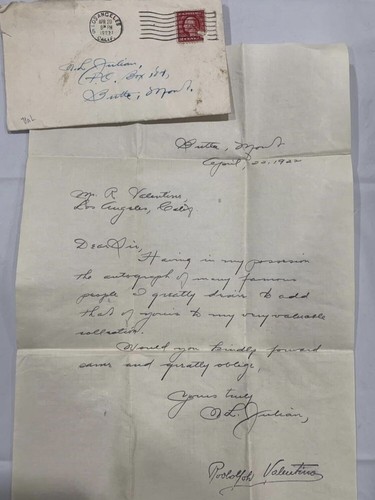 LOS ANGELES
CALIF.
N.L. Julian,
P.O. Box 174,
Butte, Mont.
Butte, Mont
April, 20, 1922
Mr. R Valentino
Los Angeles, Calif
Dear Sir,
Having in my possession
the autograph of many famous
people I greatly desire to add
that of yours to my very valuable
collection.
Would you kindly forward
same and greatly oblige
Yours truly
N L. Julian,
Rodolph Valentino